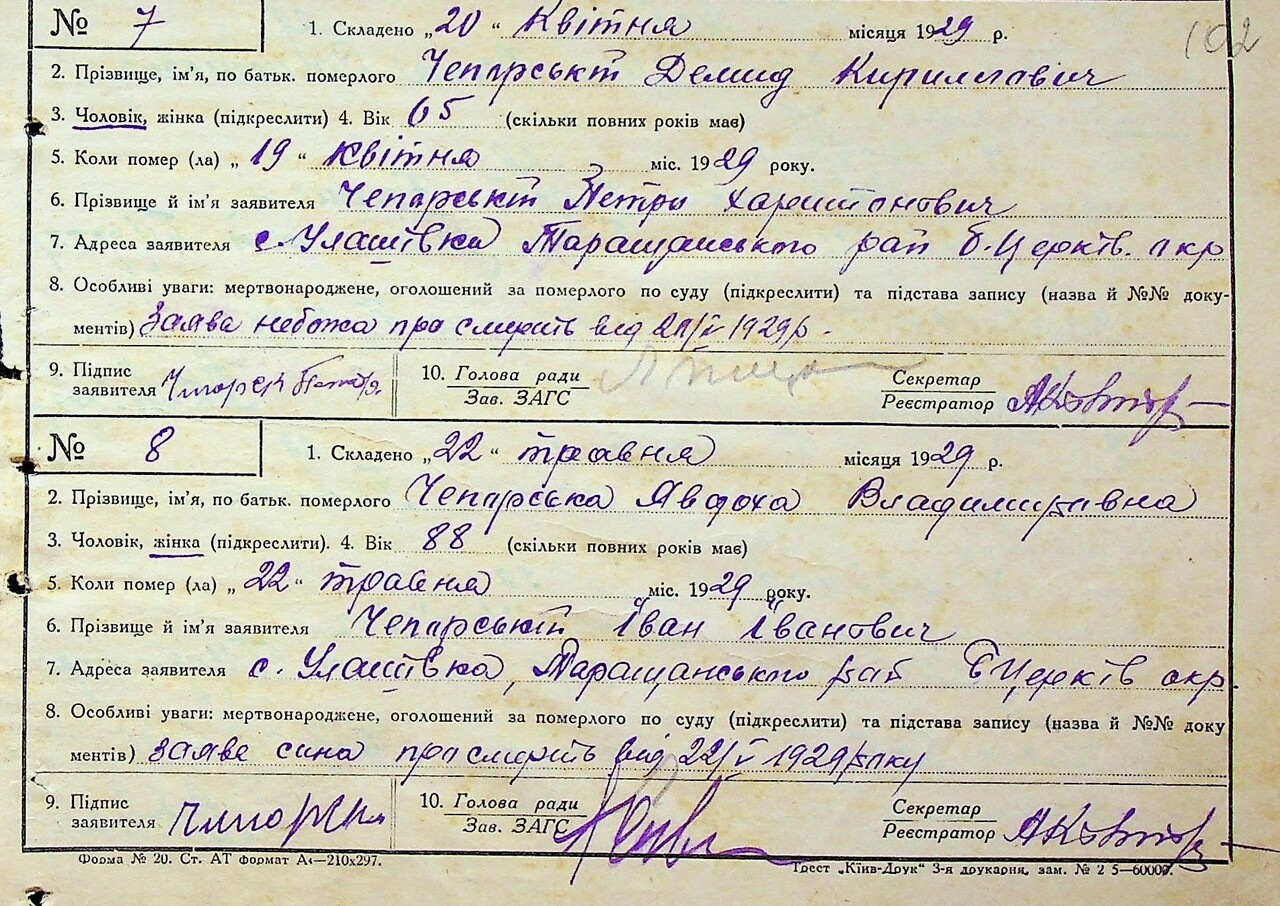 № 7 1. Складено „20“ Квітня місяця 1929 р. 102
2. Прізвище, ім’я, по батьк. померлого Чепарській Демид Кирилович
3. Чоловік, жінка (підкреслити) 4. Вік 65 (скільки повних років має)
5. Коли помер (ла) „19“ Квітня міс. 1929 року.
6. Прізвище й ім’я заявителя Чепарській Петро Харитонович
7. Адреса заявителя с. Улашівка Таращанського рай Б. Церків. окр
8. Особливі уваги: мертвонароджене, оголошений за померлого по суду (підкреслити) та підстава запису (назва й №№ доку-
ментів) Заява небожа про смерть від 1929р.
9. Підпис 10. Голова ради Секретар
заявителя Зав. ЗАГС Реєстратор
№ 8 1. Складено „22“ травня місяця 1929 р.
2. Прізвище, ім’я, по батьк. померлого Чепарська Явдоха Владимирівна
3. Чоловік, жінка (підкреслити). 4. Вік 88 (скільки повних років має)
5. Коли помер (ла) „22“ травня міс. 1929 року.
6. Прізвище й ім’я заявителя Чепарській Іван Іванович
7. Адреса заявителя с. Улашівка, Таращанського рай Б Церків окр.
8. Особливі уваги: мертвонароджене, оголошений за померлого по суду (підкреслити) та підстава запису (назва й №№ доку
ментів) заяве сина про смерть від 22/V 1929 року
9. Підпис 10. Голова ради Секретар
заявителя Зав. ЗАГС Реєстратор
Форма № 20. Ст. АТ формат А4—210х297. Трест „Київ-Друк“ 3-я друкарня, зам. № 2 5—60000.